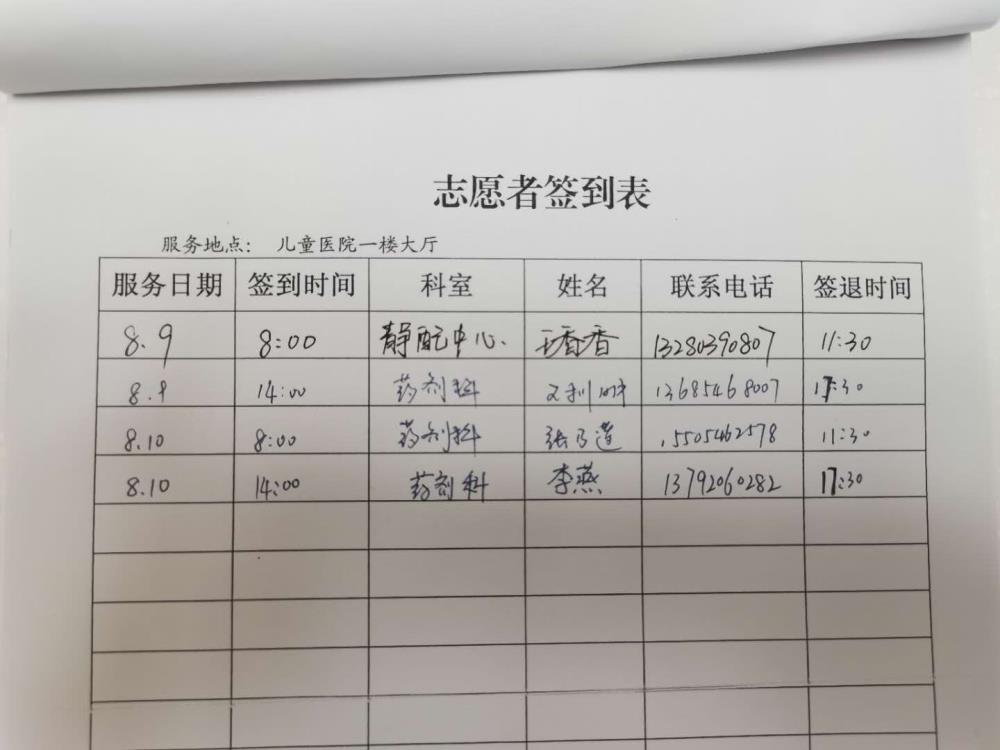 志愿者签到表
服务地点: 儿童医院一楼大厅
服务日期 签到时间 科室 姓名 联系电话 签退时间
8.9 8:00 静配中心. 王香香 13280390807 11:30
8.9 14:00 药剂科 13685468007 17:30
8.10 8:00 药剂科 15505462578 11:30
8.10 14:00 药剂科 李燕 13792060282 17:30